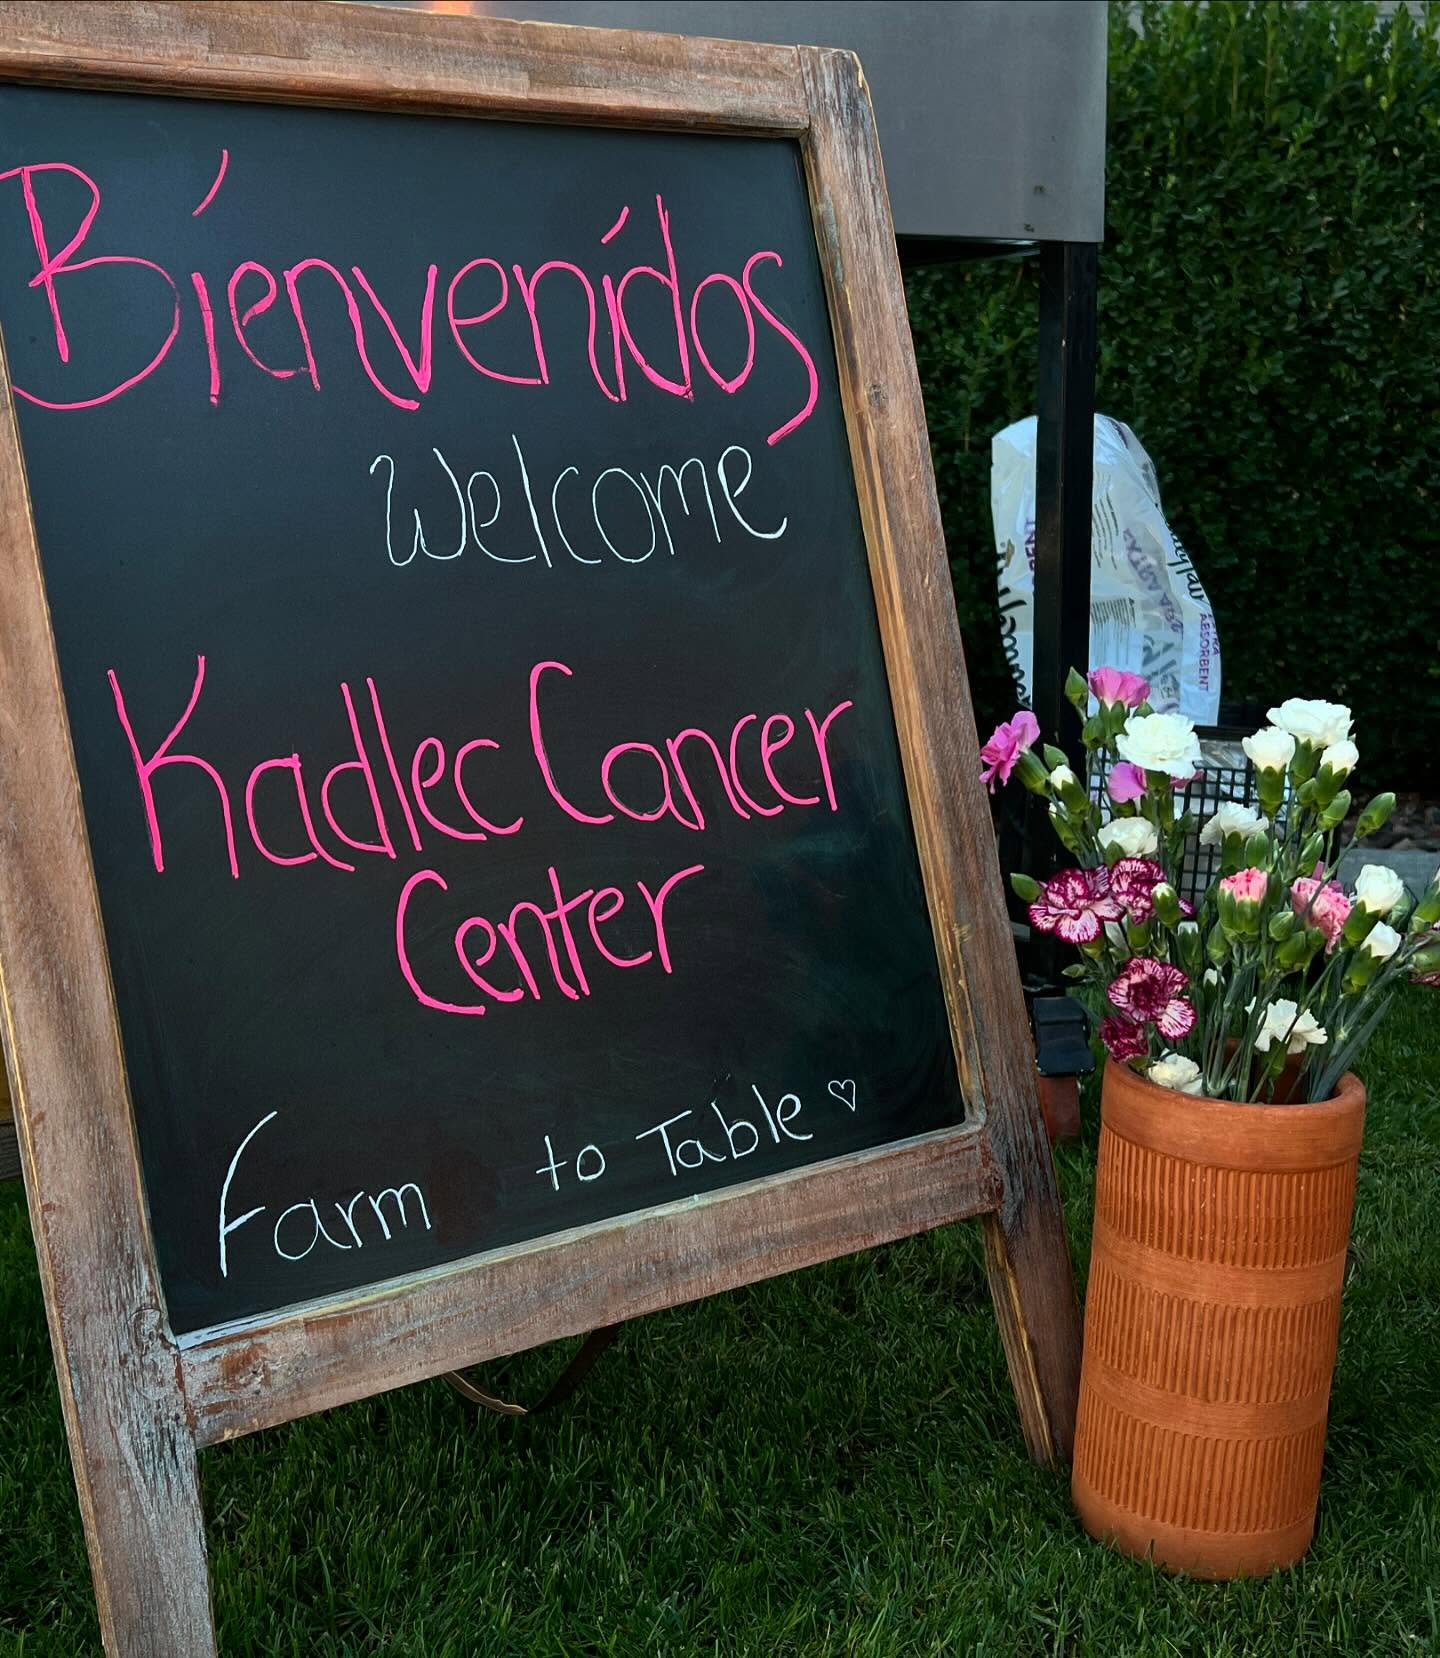 Bienvenidos
Welcome
Kadlec Cancer
Center
Farm to Table ♡
EXTRA
ABSORBENT